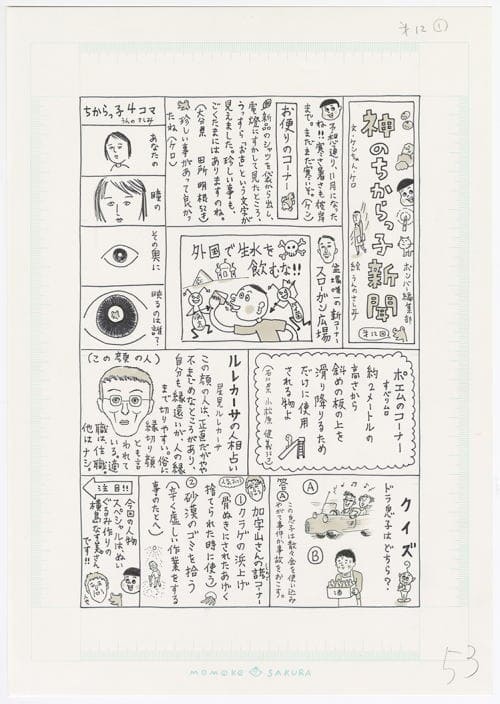 オ12①
神のちからっ子新聞
ボンバー編集部
文・ケンちゃん・ケロ
絵・うんのさしみ
第12回
予想通り、11月になった
ね!!寒さ暑さも彼岸
まで。まだまだ寒いぞ。(ケン)
お便りのコーナー
新品のシャツを袋から出し、
電燈にすかして見たところ、
うっすら「お吉」という文字が
見えました。珍しい事も
ごくたまにはありますのね。
(大分県 田所明根
珍しい事があって良かっ
たね(ケロ)
ちからっ子4コマ
うんのさしみ
あなたの
瞳の
その奥に
映るのは誰?
登場!唯一の新コーナー
スローガン広場
外国で生水を
飲むな!!
ポエムのコーナー
すべりムロ
約2メートルの
高さから
斜めの板の上を
滑り降りるため
だけに使用
される物よ
(石川県 小松原健哉
ルレカーサの人相占い
星見ルレカーサ
この顔の人は、正直だがやや
不まじめなところがあり、
自分も縁遠いが、人の縁
まで切りやすい。俗に
縁切り顔
とも言
われて
いる。適
職は、住職。
他はナシ。
(この顔の人)
クイズ
ドラ息子はどちら?
Ⓐ
Ⓑ
酒
答Ⓐ
この息子は散々金を使い込み
やがて事件や事故をおこす。
人気ズバリ
加字山さんの語コーナー
①クラゲの浜上げ
(骨ぬきにされたあげく
捨てられた時に使う)
②砂漠のゴミを拾う
(辛く虚しい作業をする
事のたとえ)
注目!!
今回の人物
スペシャルは、ぬい
ぐるみ作りの
横島なす美さん
です!!
53
MOMOKO SAKURA